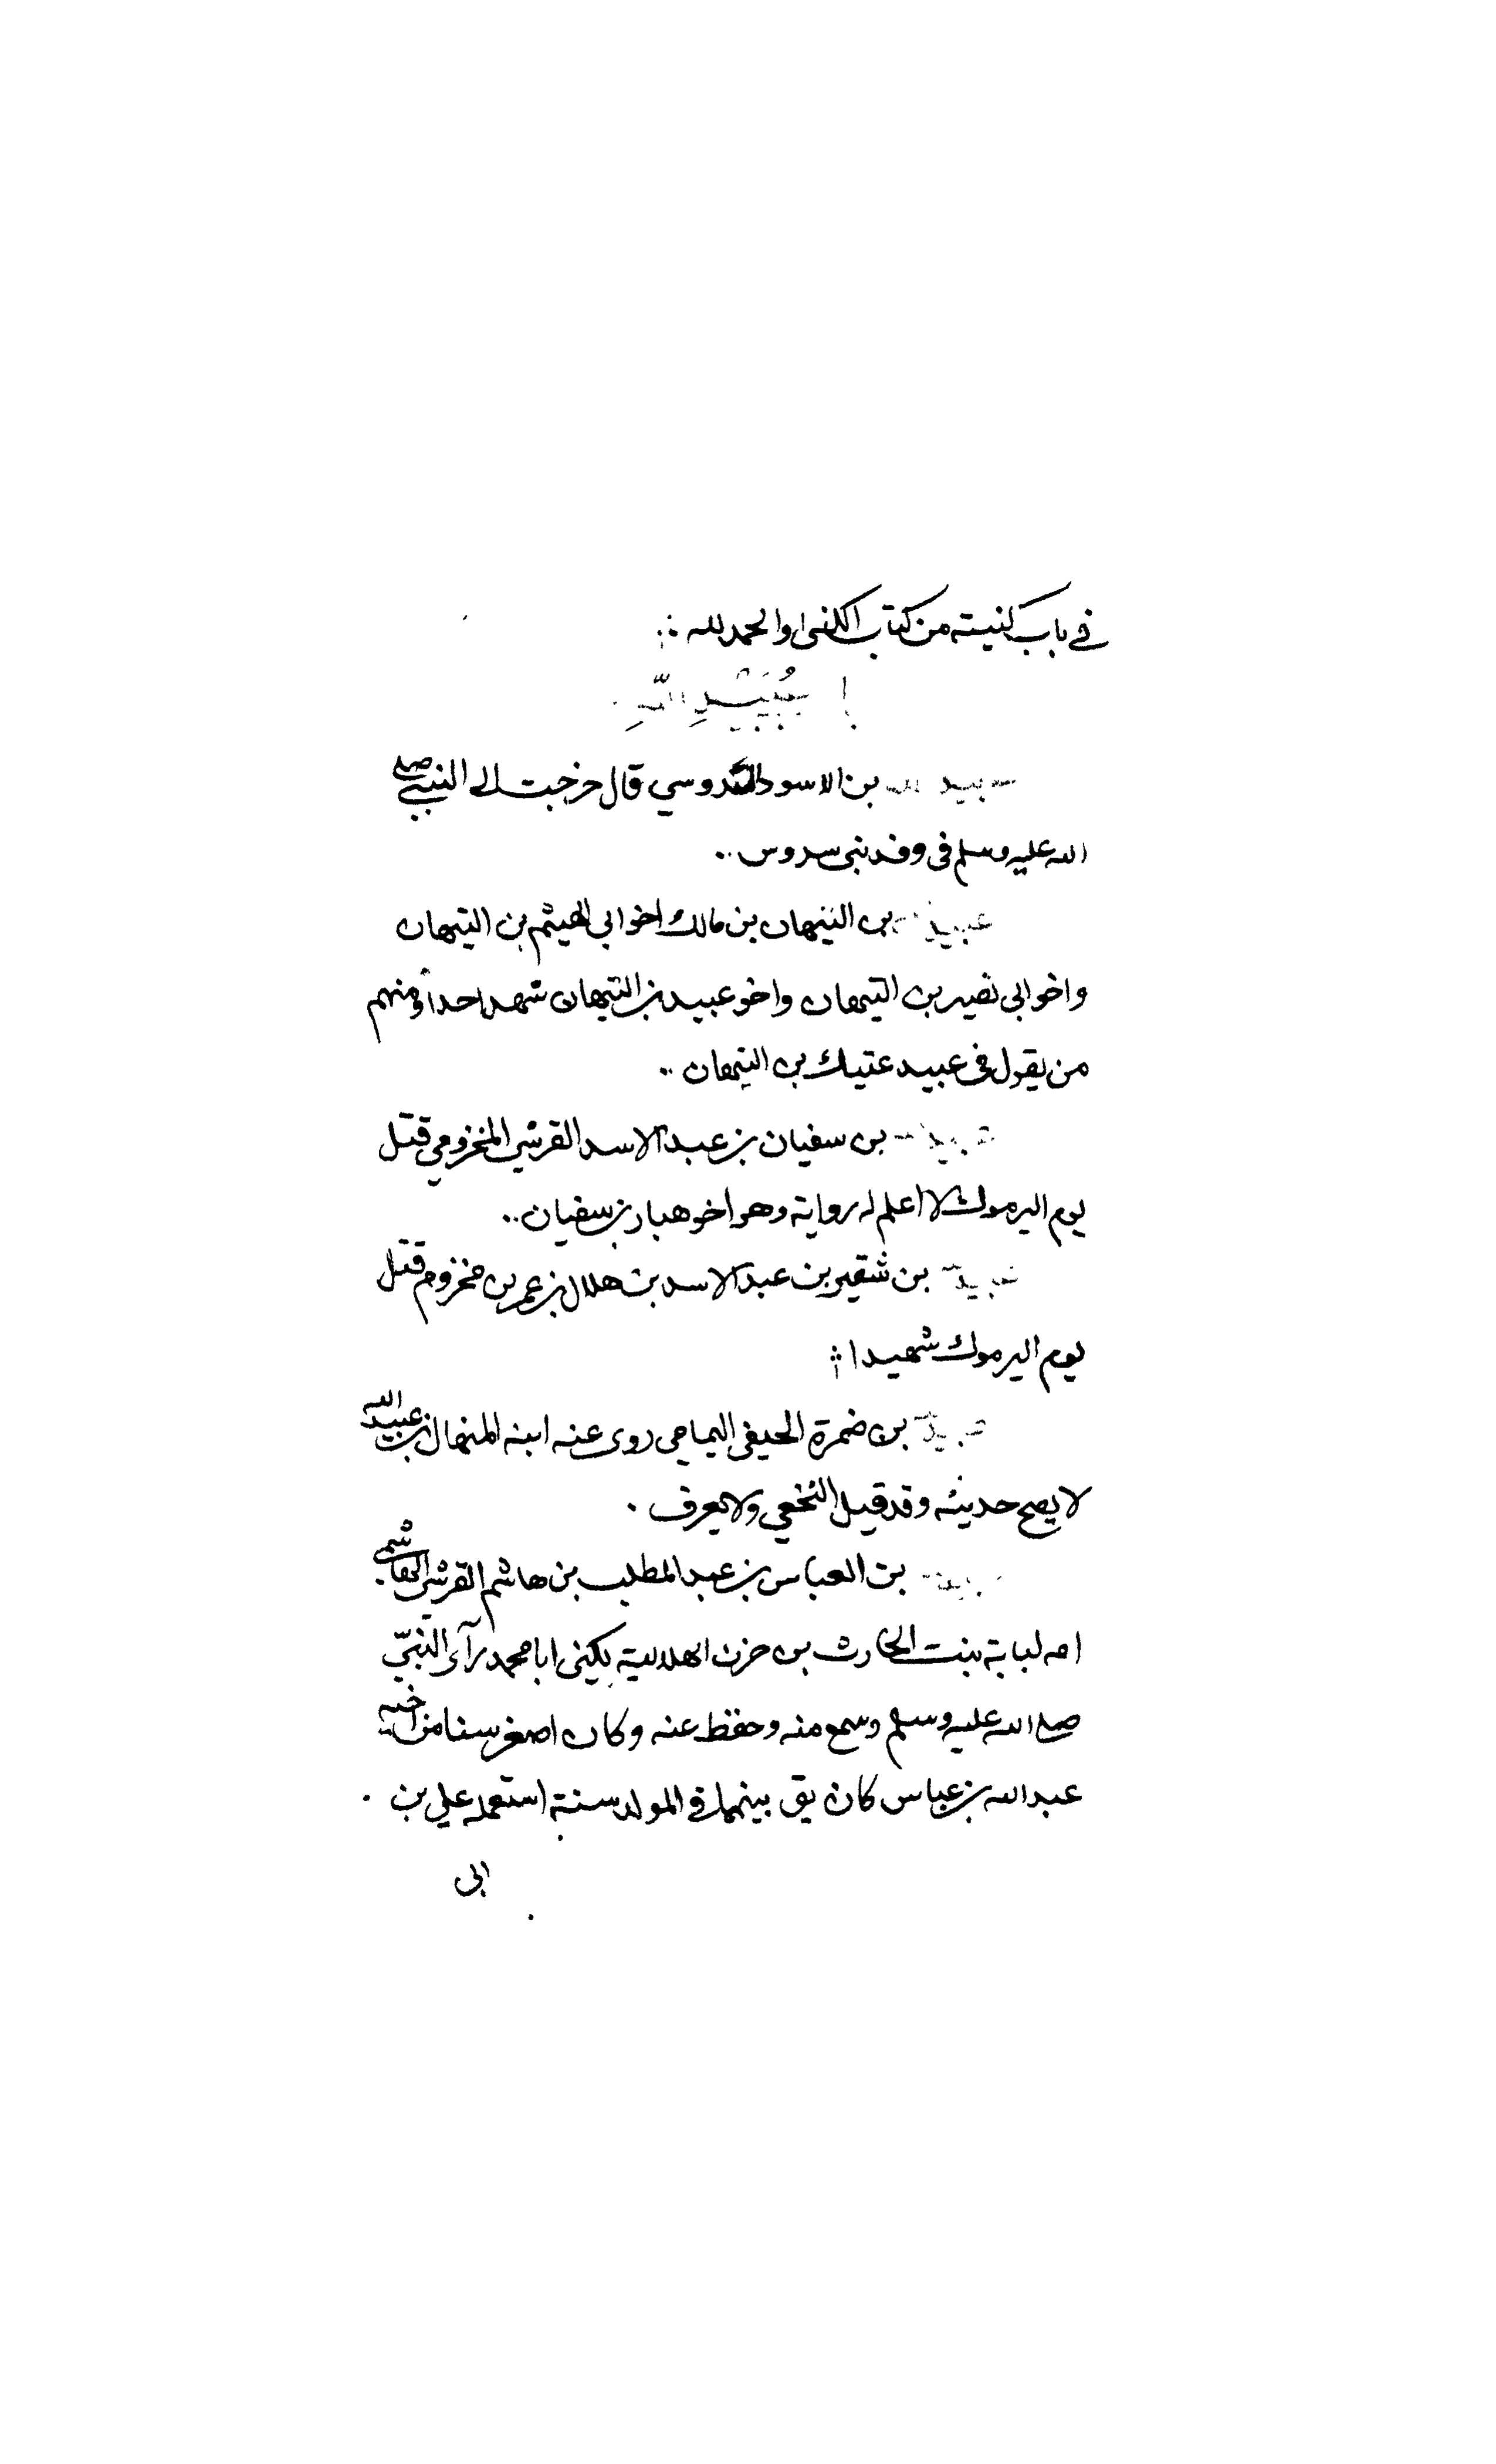 في باب كنيته من كتاب الكنى والحمد لله
عبيد الله
عبيد الله بن الاسود السدوسي قال خرجت الى النبي صلى
الله عليه وسلم في وفد بني سدوس
عبيد بن التيهان بن مالك اخو ابي الهيثم بن التيهان
واخو ابي نصير بن التيهان واخو عبيد بن التيهان شهد احدا ومنهم
من يقول في عبيد عتيك بن التيهان
عبيد بن سفيان بن عبد الاسد القرشي المخزومي قتل
يوم اليرموك لا اعلم له رواية وهو اخو هبار بن سفيان
عبيد بن شقير بن عبد الاسد بن هلال بن عمر بن مخزوم قتل
يوم اليرموك شهيدا
عبيد بن ضمرة الحيفي اليمامي روى عنه ابنه المنهال بن عبيد الله
لا يصح حديثه وقد قيل النخعي ولا يعرف
بن العباس بن عبد المطلب بن هاشم القرشي الهاشمي
امه لبابة بنت الحارث بن حزن الهلالية يكنى ابا محمد رآى النبيّ
صلى الله عليه وسلم وسمع منه وحفظ عنه وكان اصغر سنا من اخيه
عبد الله بن عباس كان يق بينهما في المولد سنة استعمله علي بن
ابى